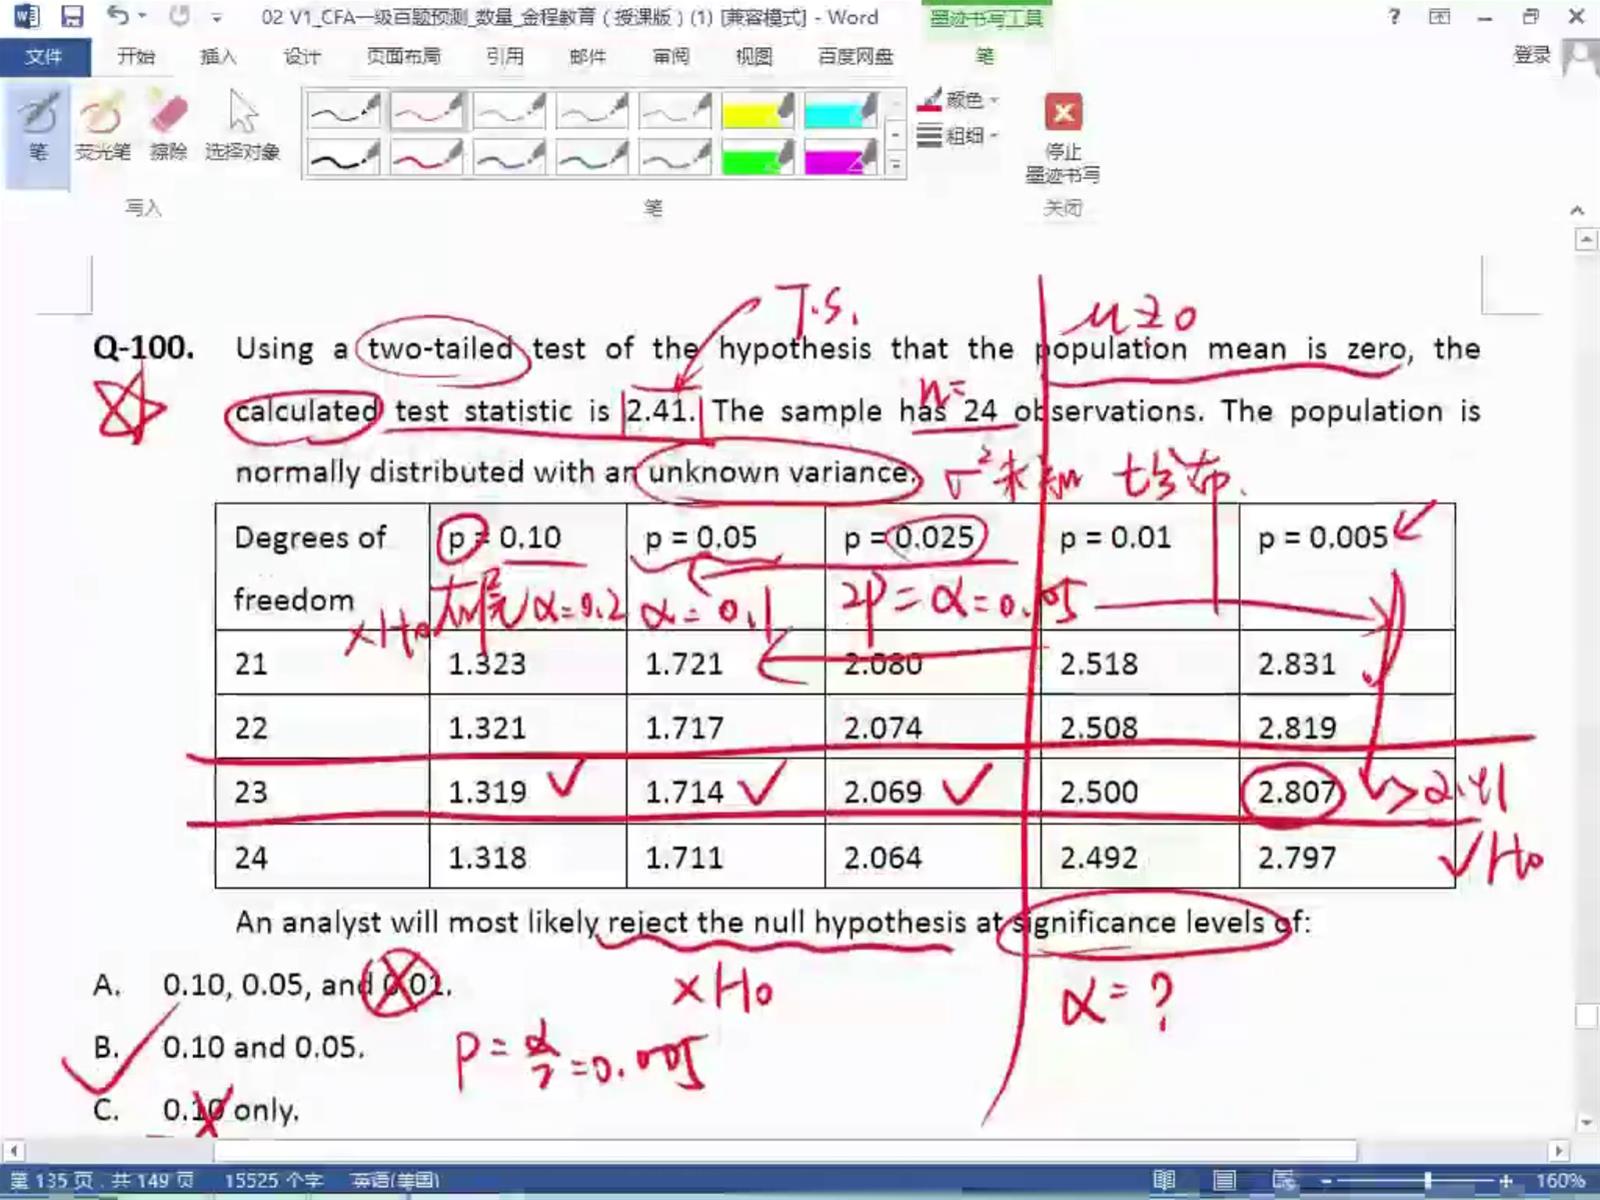 02 V1_CFA一级百题预测_数量_金程教育（授课版）(1) [兼容模式] - Word
墨迹书写工具
文件 开始 插入 设计 页面布局 引用 邮件 审阅 视图 百度网盘 笔 登录
笔 荧光笔 擦除 选择对象 颜色 粗细 停止墨迹书写
写入 笔 关闭
T.S.
Q-100. Using a two-tailed test of the hypothesis that the population mean is zero, the
n=
calculated test statistic is 2.41. The sample has 24 observations. The population is
normally distributed with an unknown variance. σ² 未知 t分布.
Degrees of freedom p = 0.10 p = 0.05 p = 0.025 p = 0.01 p = 0.005
×H₀ α=0.2 α=0.1 2P=α=0.05
21 1.323 1.721 2.080 2.518 2.831
22 1.321 1.717 2.074 2.508 2.819
23 1.319 1.714 2.069 2.500 2.807 >2.41
24 1.318 1.711 2.064 2.492 2.797 ✓H₀
An analyst will most likely reject the null hypothesis at significance levels of:
A. 0.10, 0.05, and 0.01.
×H₀ α=?
B. 0.10 and 0.05.
P=α/2=0.005
C. 0.10 only.
第 135 页，共 149 页 15525 个字 英语(美国) 160%